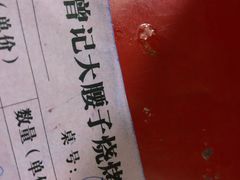 曾记大腰子烧烤
桌号:
数量(单
(单价)